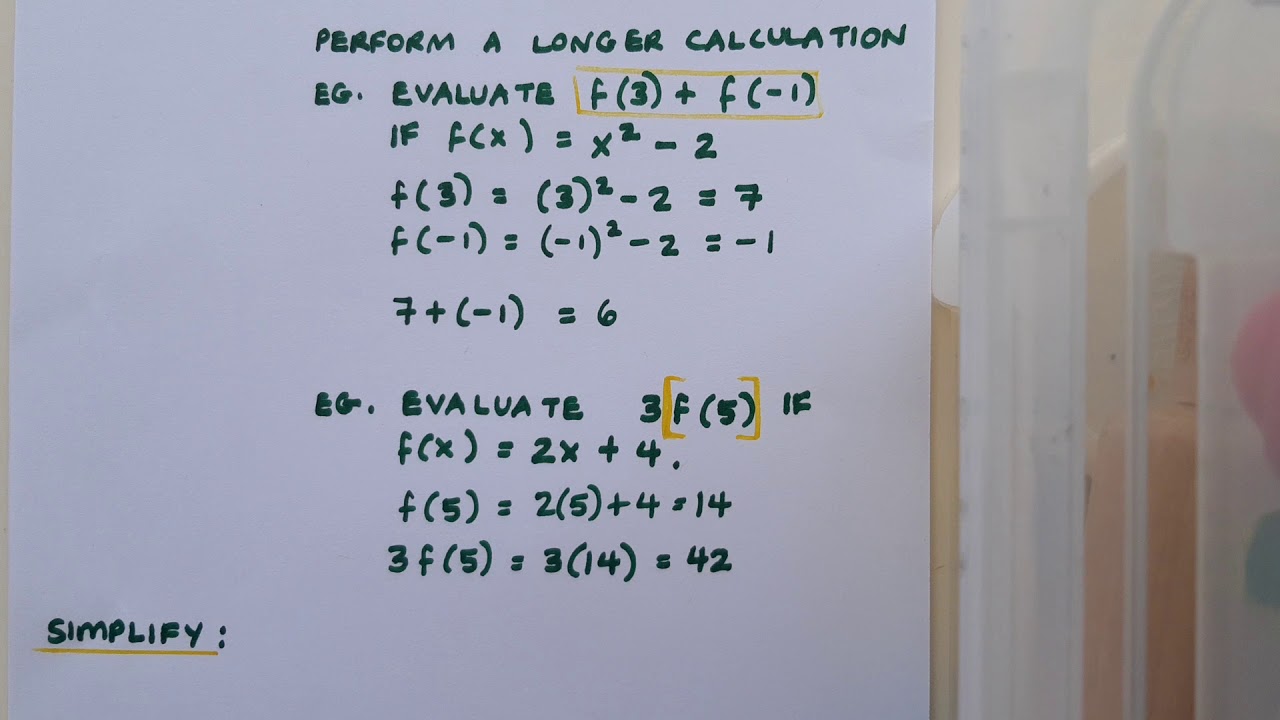 PERFORM A LONGER CALCULATION
EG. EVALUATE f(3) + f(-1)
IF f(x) = x² - 2
f(3) = (3)² - 2 = 7
f(-1) = (-1)² - 2 = -1
7 + (-1) = 6
EG. EVALUATE 3[f(5)] IF
f(x) = 2x + 4.
f(5) = 2(5) + 4 = 14
3f(5) = 3(14) = 42
SIMPLIFY: